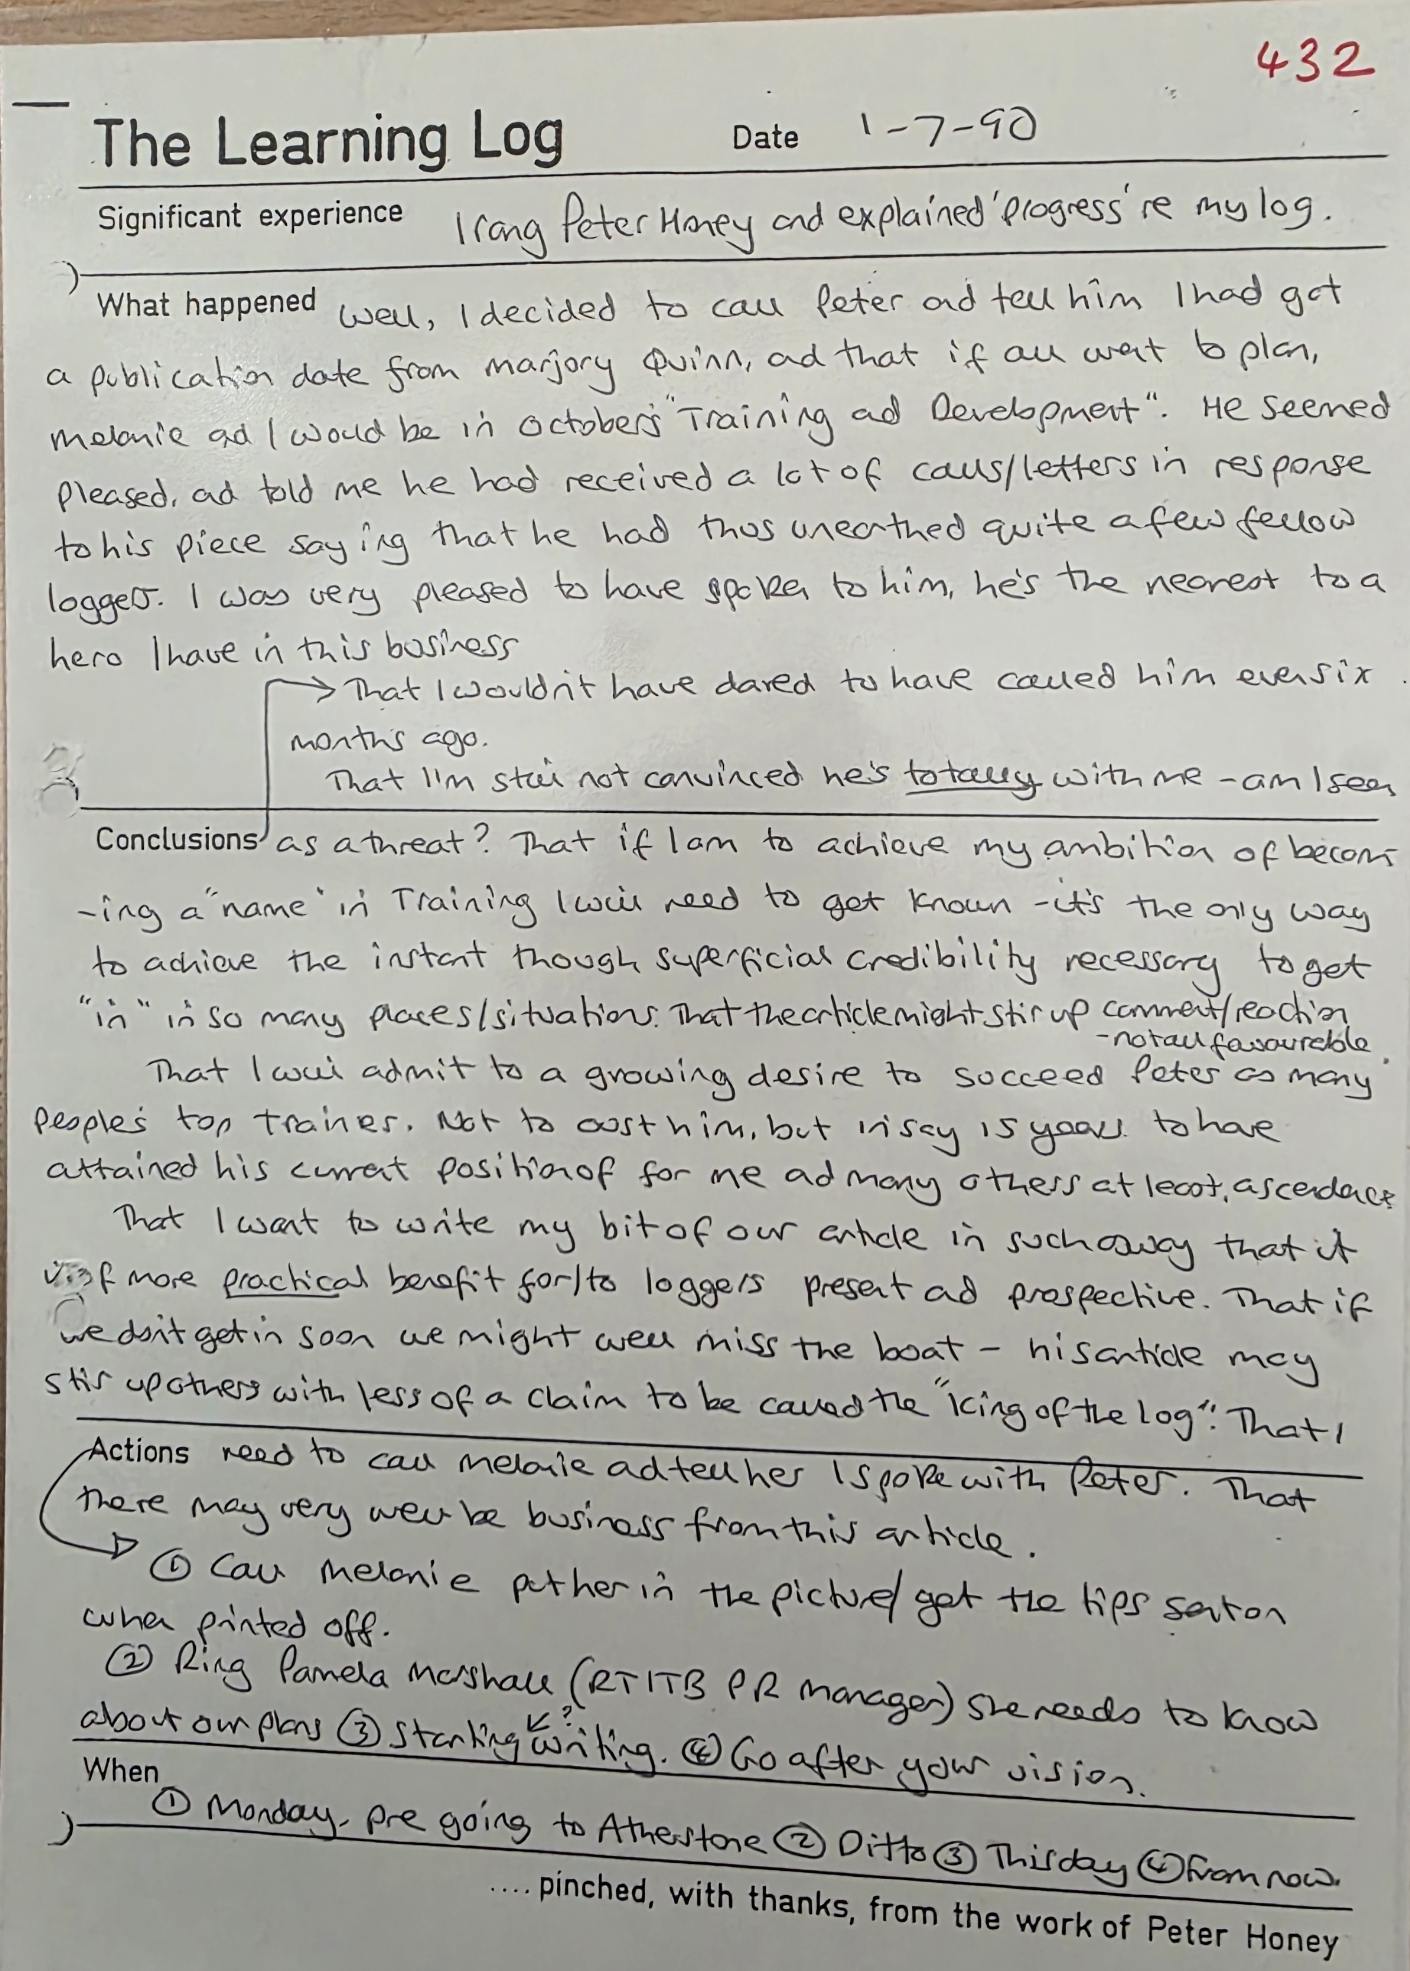 432
The Learning Log Date 1-7-90
Significant experience I rang Peter Honey and explained 'progress' re my log.
What happened Well, I decided to call Peter and tell him I had got
a publication date from Marjory Quinn, ad that if all went to plan,
Melanie ad I would be in October's "Training ad Development". He seemed
pleased, ad told me he had received a lot of calls/letters in response
to his piece saying that he had thus unearthed quite a few fellow
loggers. I was very pleased to have spoken to him, he's the nearest to a
hero I have in this business
→ That I wouldn't have dared to have called him even six
months ago.
That I'm still not convinced he's totally with me - am I seen
Conclusions as a threat? That if I am to achieve my ambition of becom
-ing a "name" in Training I will need to get known - it's the only way
to achieve the instant though superficial credibility necessary to get
"in" in so many places/situations. That the article might stir up comment/reaction
- not all favourable.
That I will admit to a growing desire to succeed Peter as many
people's top trainer. Not to oust him, but in say 15 years to have
attained his current position of for me ad many others at least, ascendance
That I want to write my bit of our article in such a way that it
is of more practical benefit for/to loggers present ad prospective. That if
we don't get in soon we might well miss the boat - his article may
stir up others with less of a claim to be called the "icing of the log". That I
Actions need to call Melanie ad tell her I spoke with Peter. That
there may very well be business from this article.
① Call Melanie put her in the picture/ get the tips sent on
when printed off.
② Ring Pamela Marshall (RTITB PR Manager) she needs to know
about our plans ③ Starting writing. ④ Go after your vision.
?
When
① Monday, pre going to Atherstone ② Ditto ③ This day ④ From now.
.... pinched, with thanks, from the work of Peter Honey